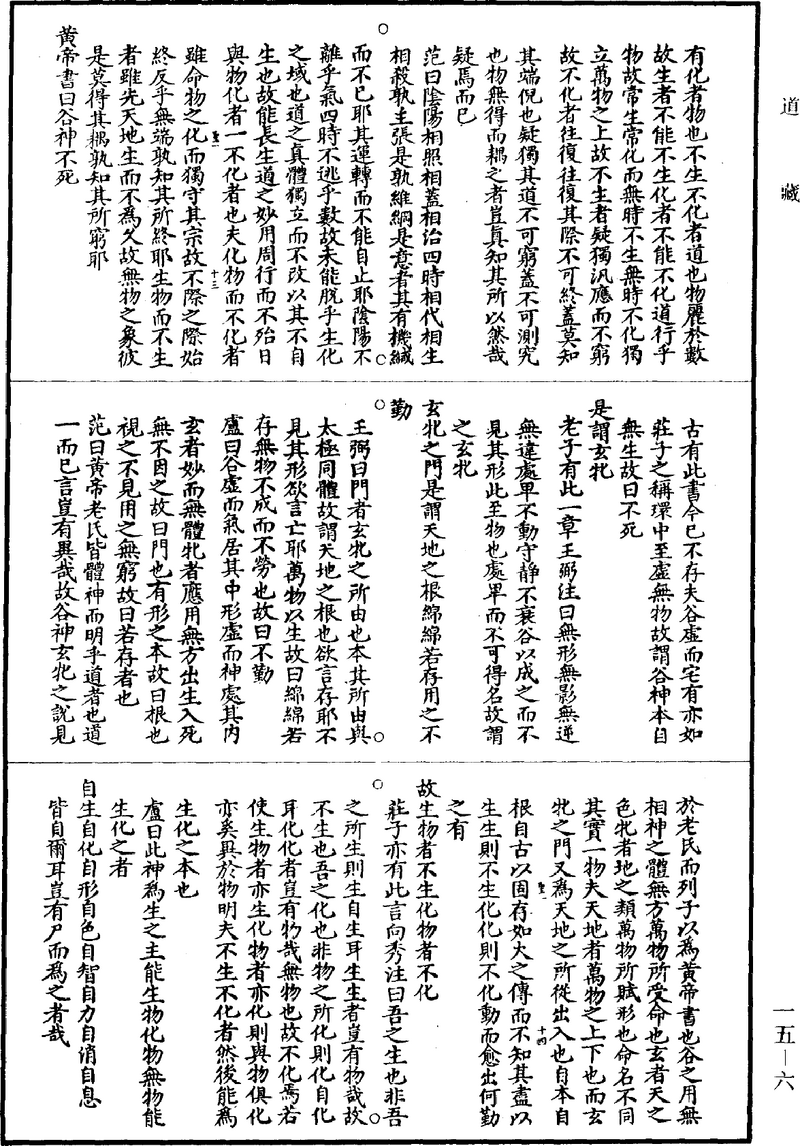 道藏
有化者物也不生不化者道也物麗於數
故生者不能不生化者不能不化道行乎
物故常生常化而無時不生無時不化獨
立萬物之上故不生者疑獨汎應而不窮
故不化者往復往復其際不可終蓋莫知
其端倪也疑獨其道不可窮蓋不可測究
也物無得而耦之者豈真知其所以然哉
疑焉而已
范曰陰陽相照相蓋相治四時相代相生
相殺孰主張是孰維綱是意者其有機緘
而不已耶其運轉而不能自止耶陰陽不
離乎氣四時不逃乎數故未能脫乎生化
之域也道之真體獨立而不改以其不自
生也故能長生道之妙用周行而不殆日
與物化者一不化者也夫化物而不化者
十三
雖命物之化而獨守其宗故不際之際始
終反乎無端孰知其所終耶生物而不生
者雖先天地生而不為久故無物之象彼
是莫得其耦孰知其所窮耶
黃帝書曰谷神不死
古有此書今已不存夫谷虛而宅有亦如
莊子之稱環中至虛無物故謂谷神本自
無生故曰不死
是謂玄牝
老子有此一章王弼注曰無形無影無逆
無違處卑不動守靜不衰谷以成之而不
見其形此至物也處卑而不可得名故謂
之玄牝
玄牝之門是謂天地之根綿綿若存用之不
勤
王弼曰門者玄牝之所由也本其所由與
太極同體故謂天地之根也欲言存耶不
見其形欲言亡耶萬物以生故曰綿綿若
存無物不成而不勞也故曰不勤
盧曰谷虛而氣居其中形虛而神處其內
玄者妙而無體牝者應用無方出生入死
無不因之故曰門也有形之本故曰根也
視之不見用之無窮故曰若存者也
范曰黃帝老氏皆體神而明乎道者也道
一而已言豈有異哉故谷神玄牝之說見
於老氏而列子以為黃帝書也谷之用無
相神之體無方萬物所受命也玄者天之
色牝者地之類萬物所賦形也命名不同
其實一物夫天地者萬物之上下也而玄
牝之門又為天地之所從出入也自本自
十四
根自古以固存如火之傳而不知其盡以
生生則不生化化則不化動而愈出何勤
之有
故生物者不生化物者不化
莊子亦有此言向秀注曰吾之生也非吾
之所生則生自生耳生生者豈有物哉故
不生也吾之化也非物之所化則化自化
耳化化者豈有物哉無物也故不化焉若
使生物者亦生化物者亦化則與物俱化
亦奚異於物明夫不生不化者然後能為
生化之本也
盧曰此神為生之主能生物化物無物能
生化之者
自生自化自形自色自智自力自消自息
皆自爾耳豈有尸而為之者哉
一五—六